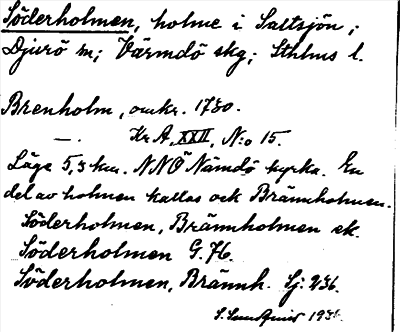 Söderholmen, holme i Saltsjön;
Djurö sn; Värmdö skg; Sthlms l.
Brenholm, omkr. 1730.
—. Kr A, XXII, N:o 15.
Läge 5,3 km. NNÖ Nämdö kyrka. En
del av holmen kallas ock Brännholmen.
Söderholmen, Brännholmen ek.
Söderholmen G. 76.
Söderholmen, Brännh. Sj: 236.